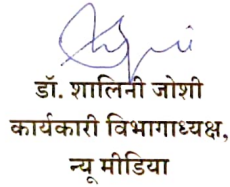 डॉ. शालिनी जोशी
कार्यकारी विभागाध्यक्ष,
न्यू मीडिया